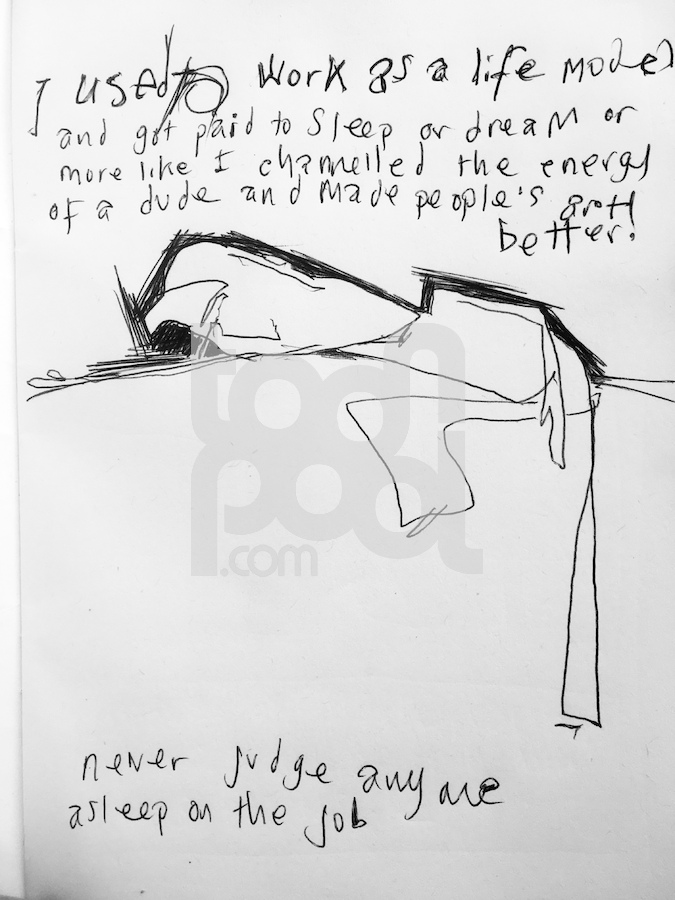 I used to work as a life model
and got paid to sleep or dream or
more like I channelled the energy
of a dude and made people's art
better!
toonpool
.com
never judge anyone
asleep on the job